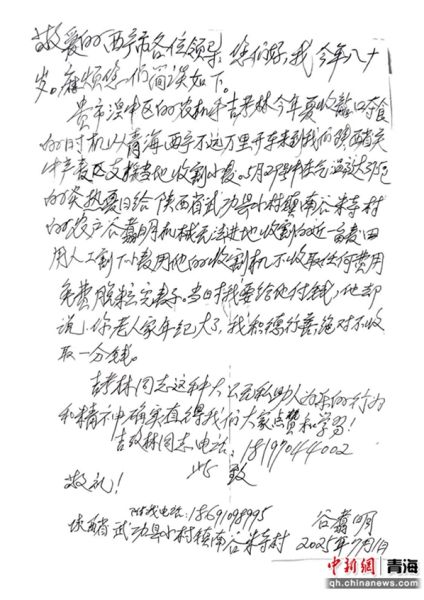 敬爱的西宁市各位领导,您们好,我今年八十
岁。麻烦您们简谈如下。
贵市湟中区的农机手吉孝林今年夏收龙口夺食
的时机从青海西宁不远万里开车来到我们陕西关
中麦区支援当地收割小麦。5月29号中午气温达35
的炎热夏日给陕西省武功县小村镇南谷米寺村
的农户谷翥明机械无法进地收割的近一亩麦田
用人工割下小麦用他的收割机不收取任何费用
免费脱粒完麦子。当时我要给他付钱,他却
说:你老人家年纪大了,我积德行善绝对不收
取一分钱。
吉孝林同志这种大公无私助人为乐的行为
和精神确实值得我们大家点赞和学习!
吉孝林同志电话:18197044002
此致
敬礼!
附我电话:18691098995 谷翥明
陕西省武功县小村镇南谷米寺村 2025年7月1日
中新网 青海
qh.chinanews.com